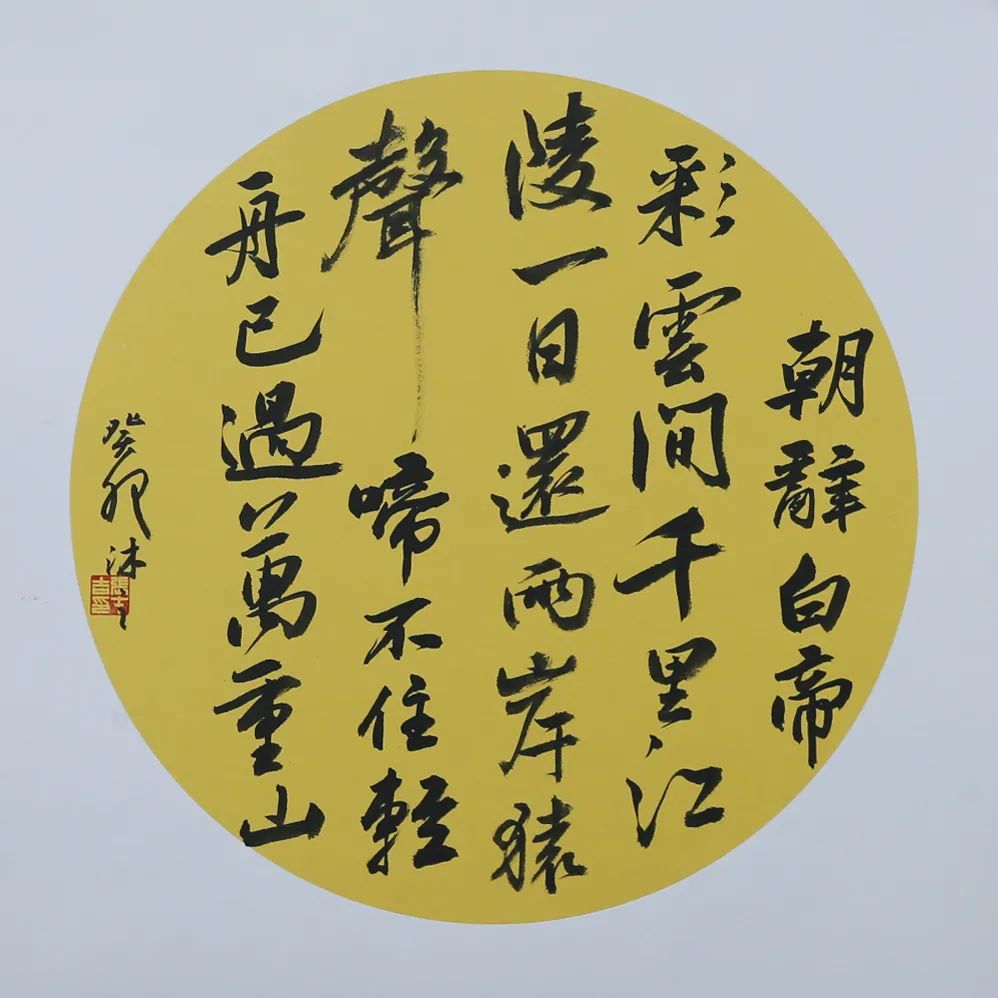 朝辭白帝
彩雲間千里江
陵一日還兩岸猿
聲啼不住輕
舟已過萬重山
癸卯沐